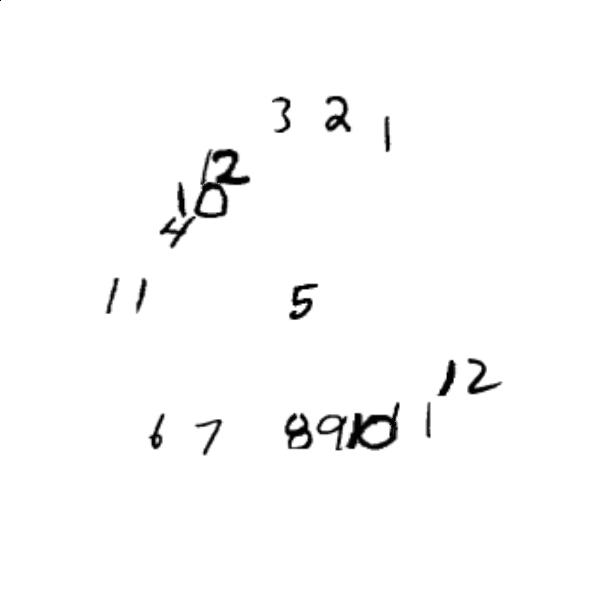 3 2 1
12
10
4
11 5
12
6 7 8 9 10 11